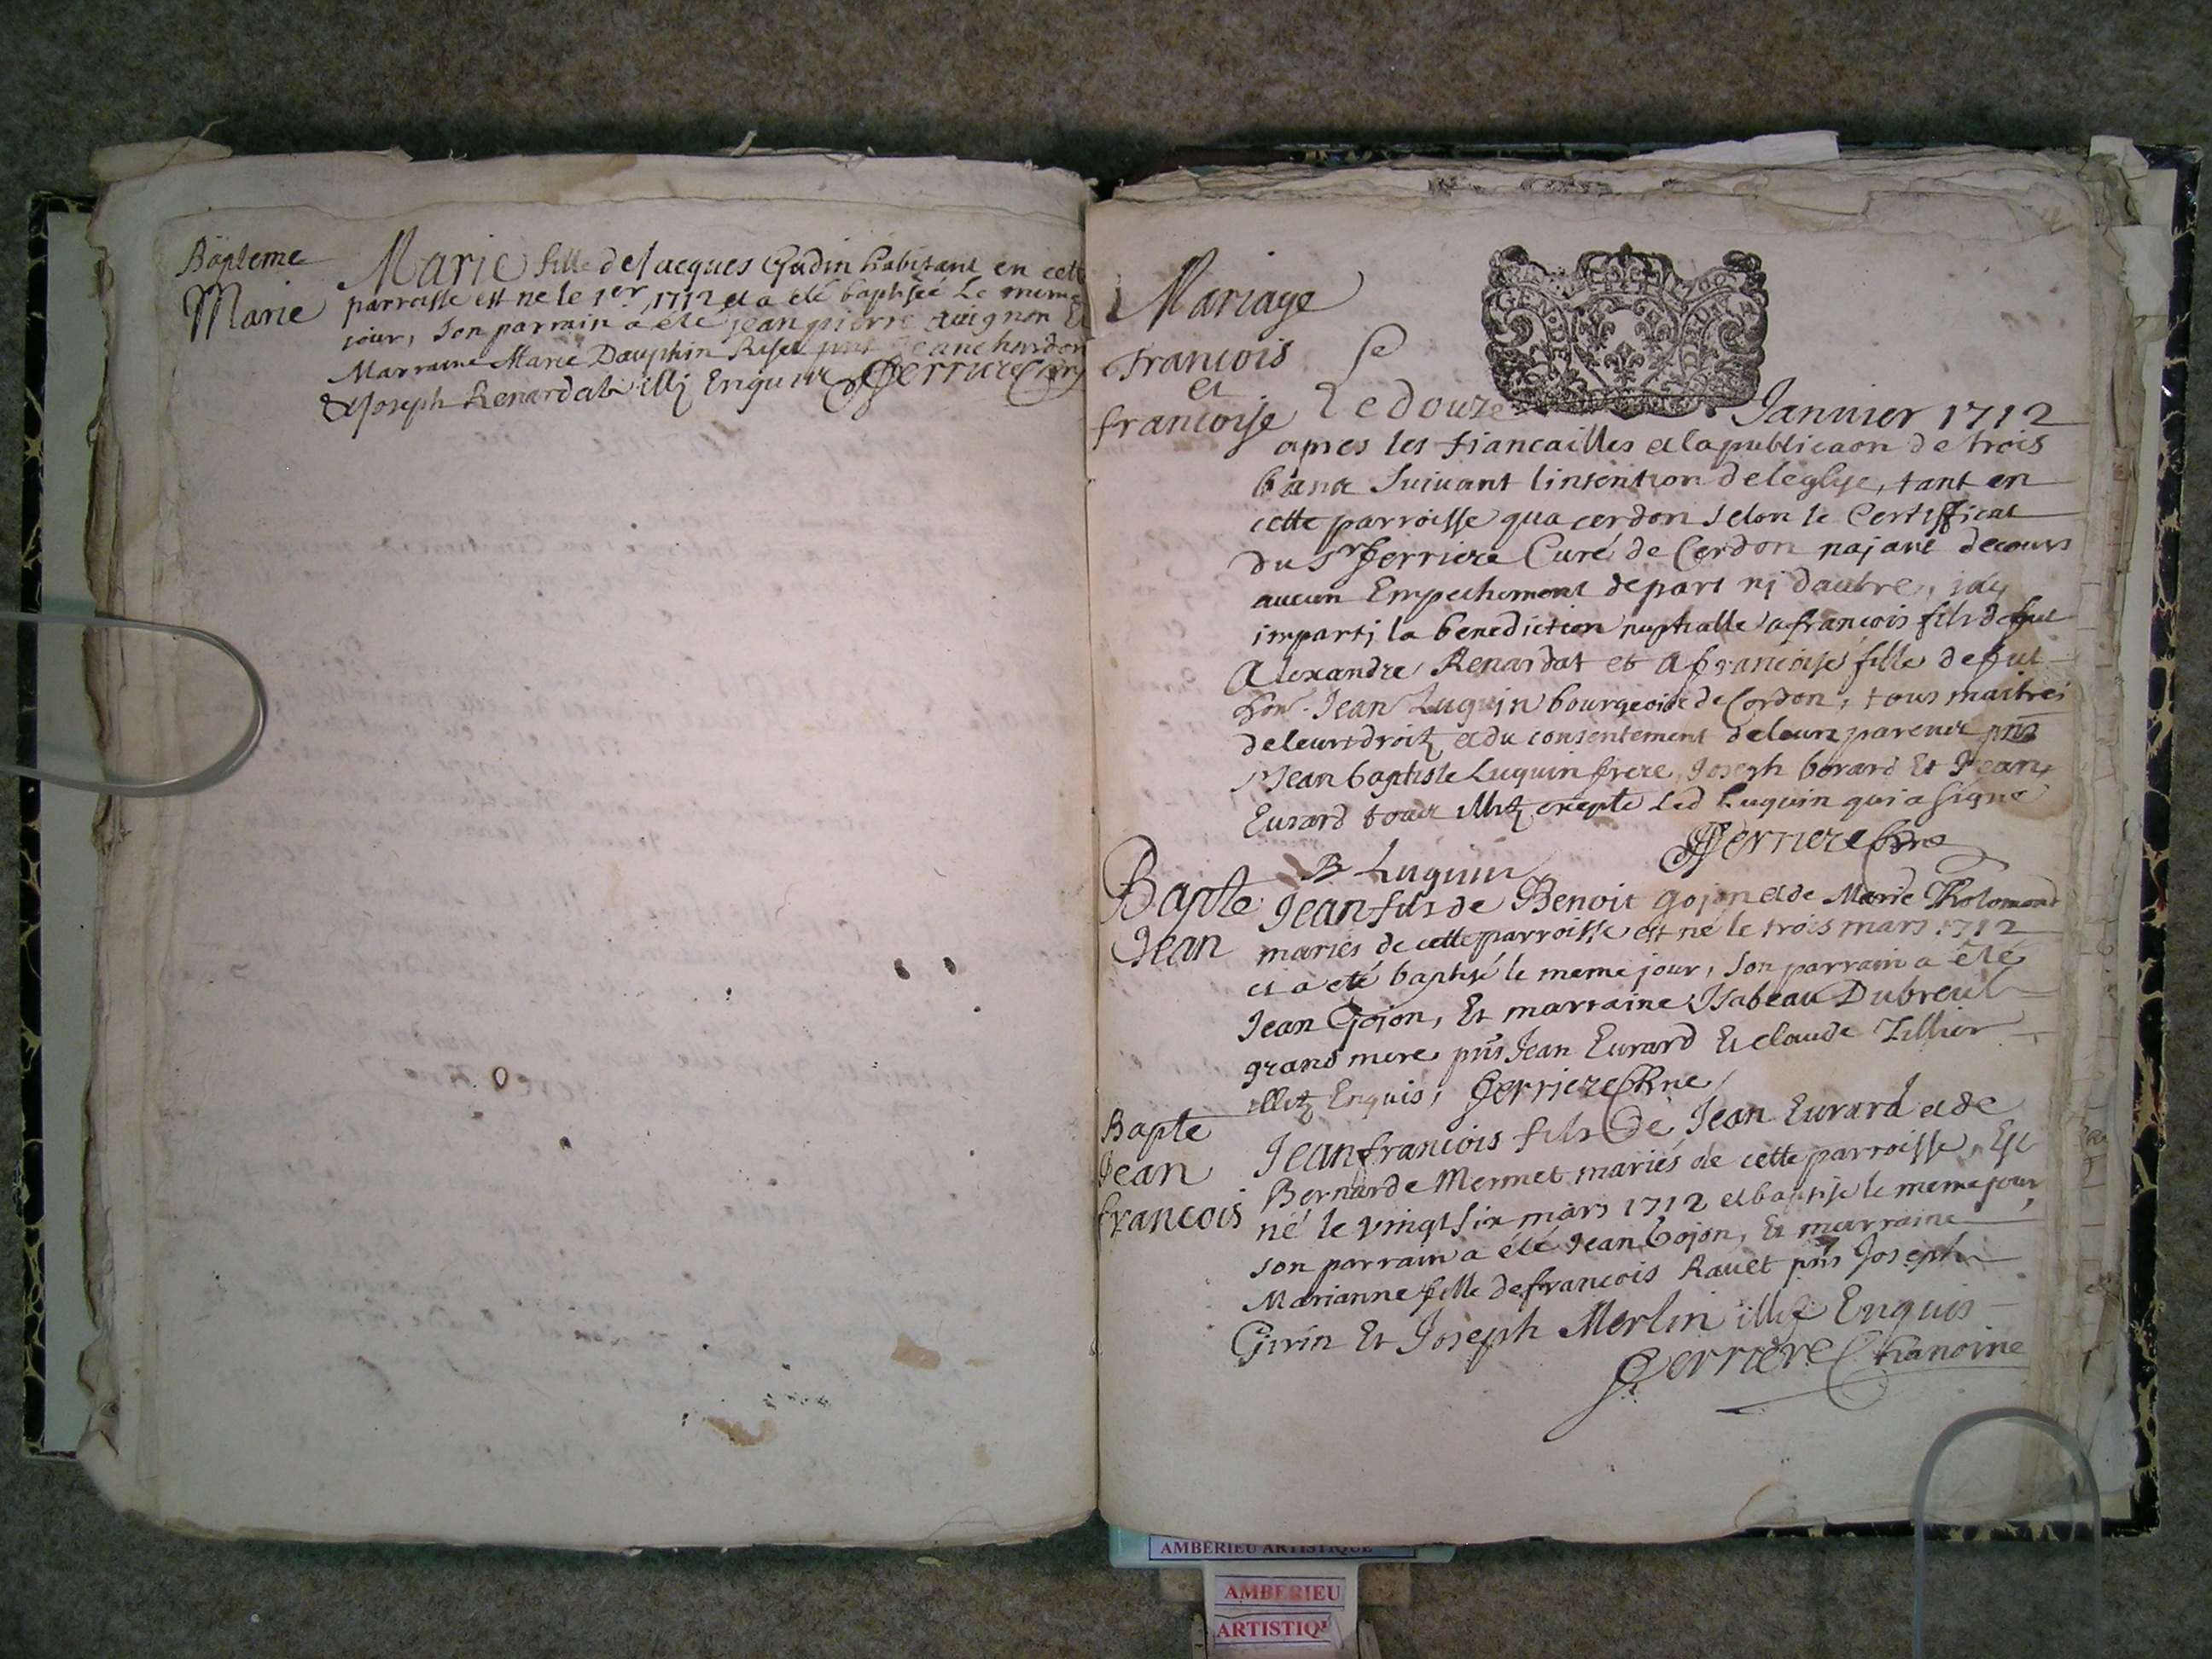 Bapteme
Marie
Marie fille de Jacques Gudin habitant en cett
parroisse est ne le 1er 1712 et a eté baptisée Le meme
jour, Son parrain a été jean pierre auignon Et
Marraine Marie Dauphin Jean chardon
& Joseph Renardat illz Enquis Ferriere
Mariage
francois
et
francoise
Le douze Januier 1712
apres les fiancailles et la publicaon de trois
bans Suiuant lintention de leglise, tant en
cette parroisse qua cerdon selon le Certifficat
du Sr Ferriere Curé de Cerdon najant decouu
aucun Empechement depart nj dautre, jaij
impartj la benediction nuptialle a francois fils de fut
Alexandre Renardat et a francoise fille de fut
hon. Jean Luquin bourgeois de Cerdon, tous maitres
de leurs droitz et du consentement de leurs parens pns
Jean baptiste Luquin frere, Joseph borard Et Jean
Eurard tous illitz excepte Led Luquin qui a signe
Ferriere Chne
B Luquin
Bapte
Jean
Jean fils de Benoit Gojon et de Marie Tholomond
mariés de cette parroisse est né le trois mars 1712
et a eté baptisé le meme jour, Son parrain a été
Jean Gojon, Et marraine Isabeau Dubreul
grand mere pns Jean Eurard Et claude Tillier
illitz Enquis, Ferriere Chne
Bapte
Jean
francois
Jean francois fils de Jean Eurard et de
Bernarde Mermet mariés de cette parroisse, Est
né le vingt six mars 1712 et baptise le meme jour,
son parrain a été Jean Gojon, Et marraine
Marianne fille de francois Rauet pns Joseph
Girin Et Joseph Merlin illiz Enquis
Ferriere Chanoine
AMBERIEU ARTISTIQUE
AMBERIEU
ARTISTIQU